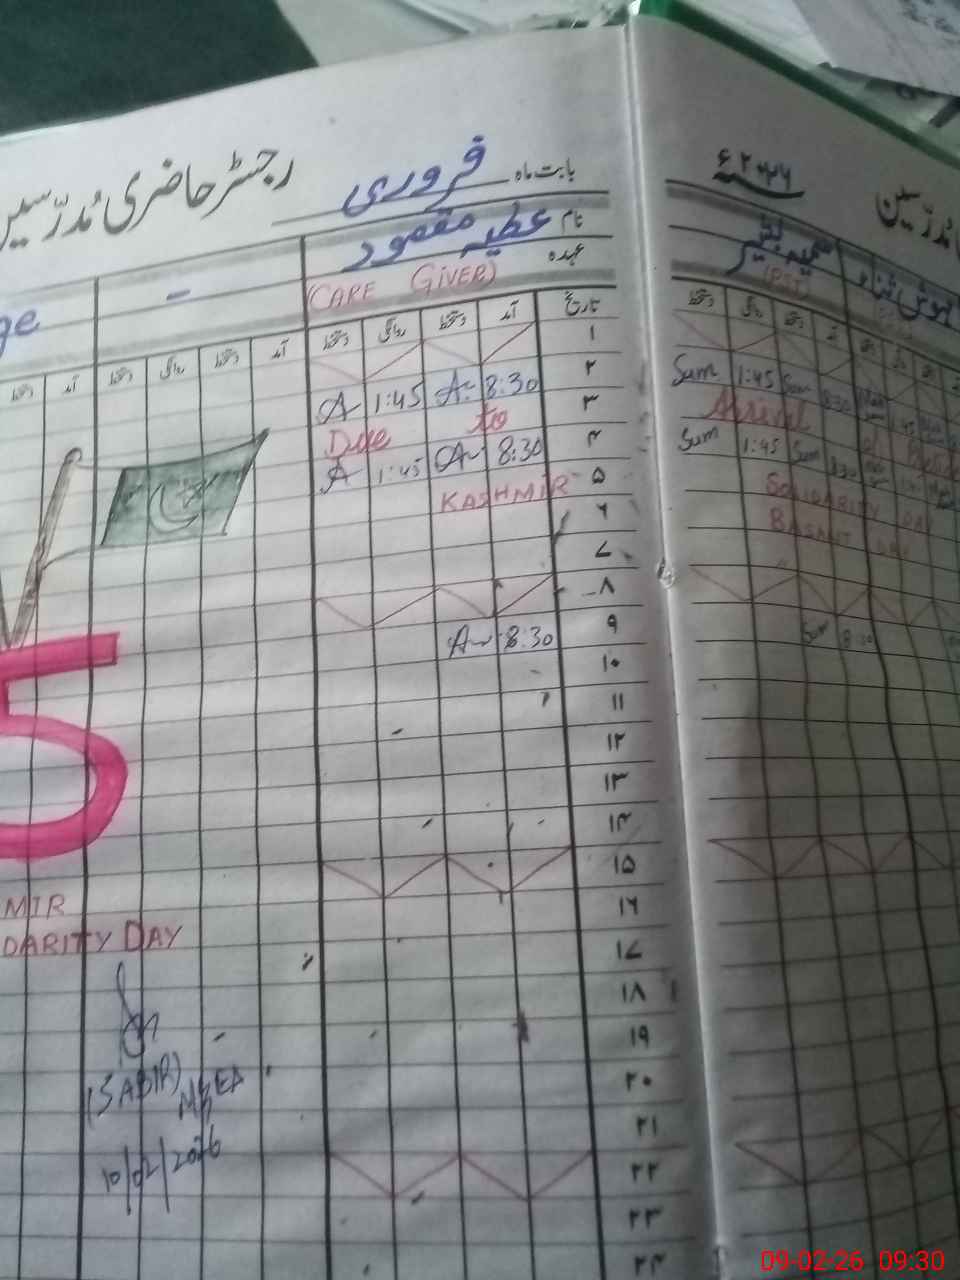 رجسٹر حاضری مُدرّسین
بابت ماہ فروری
۲۰۲۶ء
مُدرّسین
نام عطیہ مقصود
عہدہ (CARE GIVER)
(PST)
تاریخ آمد دستخط روانگی دستخط
آمد دستخط روانگی دستخط
آمد دستخط
دستخط روانگی دستخط آمد
۱
۲ 8:30 A 1:45 A
Sum 1:45 Sum 8:30
۳ Due to
Arrival of
۴ 8:30 A 1:45 A
Sum 1:45 Sum 8:30
۵ KASHMIR SOLIDARITY DAY
۶ BASANT DAY
۷
۸
۹ 8:30 A
Sum 8:30
۱۰
۱۱
۱۲
۱۳
۱۴
۱۵
۱۶
۱۷
۱۸
۱۹
۲۰
۲۱
۲۲
۲۳
۲۴
5
MIR
DARITY DAY
(SABIR)
MEA
10/02/2026
09-02-26 09:30